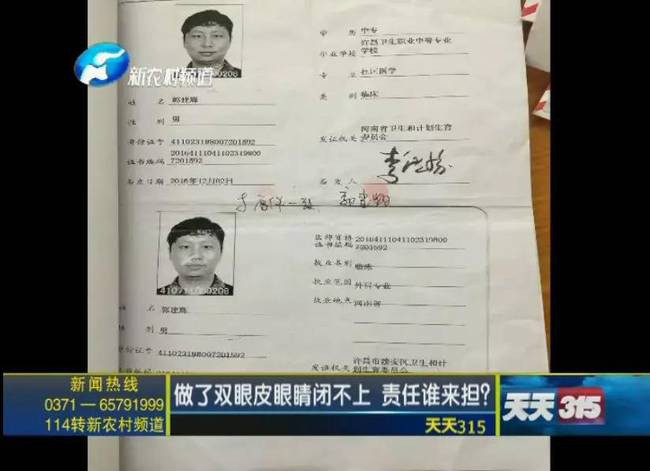 新农村频道
学 历 中专
毕业学校 许昌卫生职业中等专业
学校
专 业 社区医学
类 别 临床
姓 名 郭建辉
性 别 男
身份证号 411023198007201592
证书编码 20164111041102319800
7201592
发证机关 河南省卫生和计划生育
委员会
签发日期 2016年12月02日
签发人
医师资格
证书编码 20164111041102319800
7201592
执业类别 临床
执业范围 外科专业
执业地点 河南省
姓 名 郭建辉
性 别 男
身份证号 411023198007201592
发证机关 许昌市建安区卫生和计
划生育委员会
新闻热线
0371—65791999
114转新农村频道
做了双眼皮眼睛闭不上 责任谁来担?
天天315
天天315